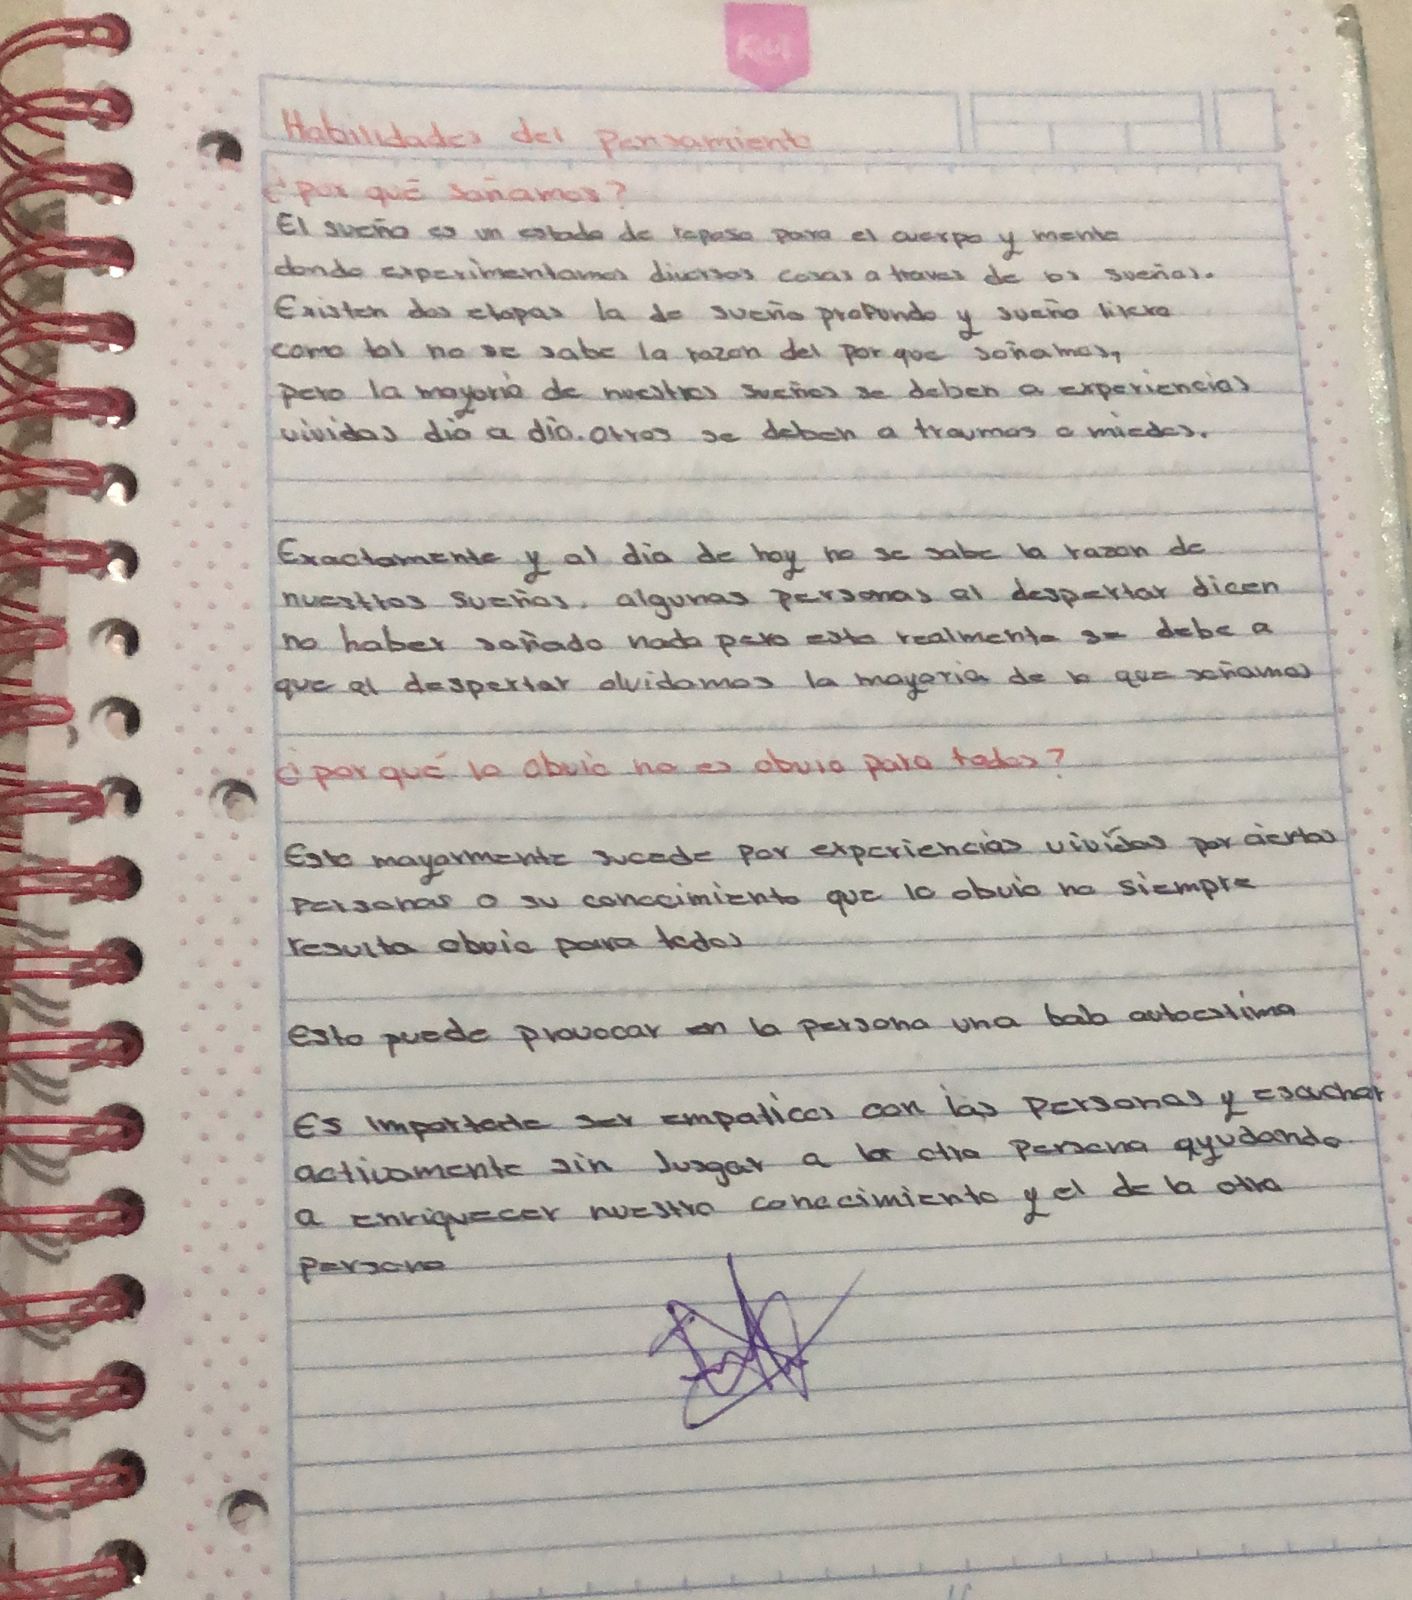 KM
Habilidades del pensamiento
¿por qué soñamos?
El sueño es un estado de reposo para el cuerpo y mente
donde experimentamos diversas cosas a traves de los sueños.
Existen dos etapas la de sueño profundo y sueño
como tal no se sabe la razon del por que soñamos,
pero la mayoria de nuestros sueños se deben a experiencias
vividas dia a dia. Otros se deben a traumas o miedos.
Exactamente y al dia de hoy no se sabe la razon de
nuestros sueños. algunas personas al despertar dicen
no haber soñado nada pero esto realmente se debe a
que al despertar olvidamos la mayoria de lo que soñamos
¿por qué lo obvio no es obvio para todos?
Esto mayormente sucede por experiencias vividas por ciertas
personas o su conocimiento que lo obvio no siempre
resulta obvio para todos
esto puede provocar en la persona una autoestima
Es ser empaticos con las personas y escuchar
activamente sin Jusgar a la otra persona ayudando
a enriquecer nuestro conocimiento y el de la otra
persona